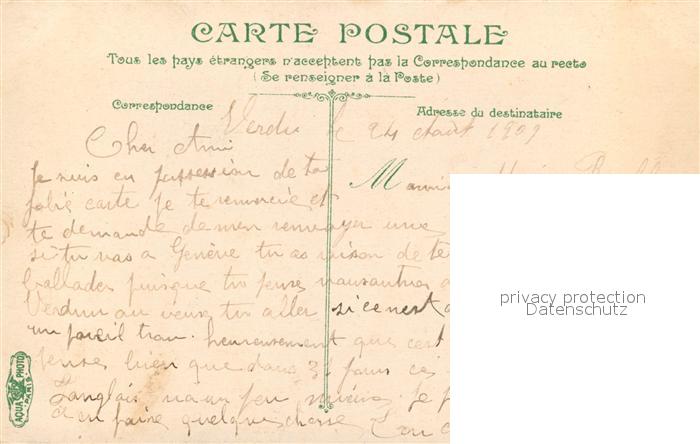 CARTE POSTALE
Tous les pays étrangers n'acceptent pas la Correspondance au recto
(Se renseigner à la Poste)
Correspondance
Adresse du destinataire
Verdun le 24 Août 1909
Cher Ami
Je suis en possession de ta
jolie carte je te remercie et
te demande de men renvoyer une
si tu vas a Genève tu as raison de te
ballader puisque tu peux nausautres a
Verdun au veux tu aller si ce nest
un pareil trou. heureusement que cest
pense bien que dans 31 jours
Langlais va un peu mieux. Je
a en faire quelque chose Ton
privacy protection
Datenschutz
AQUA PHOTO
PARIS